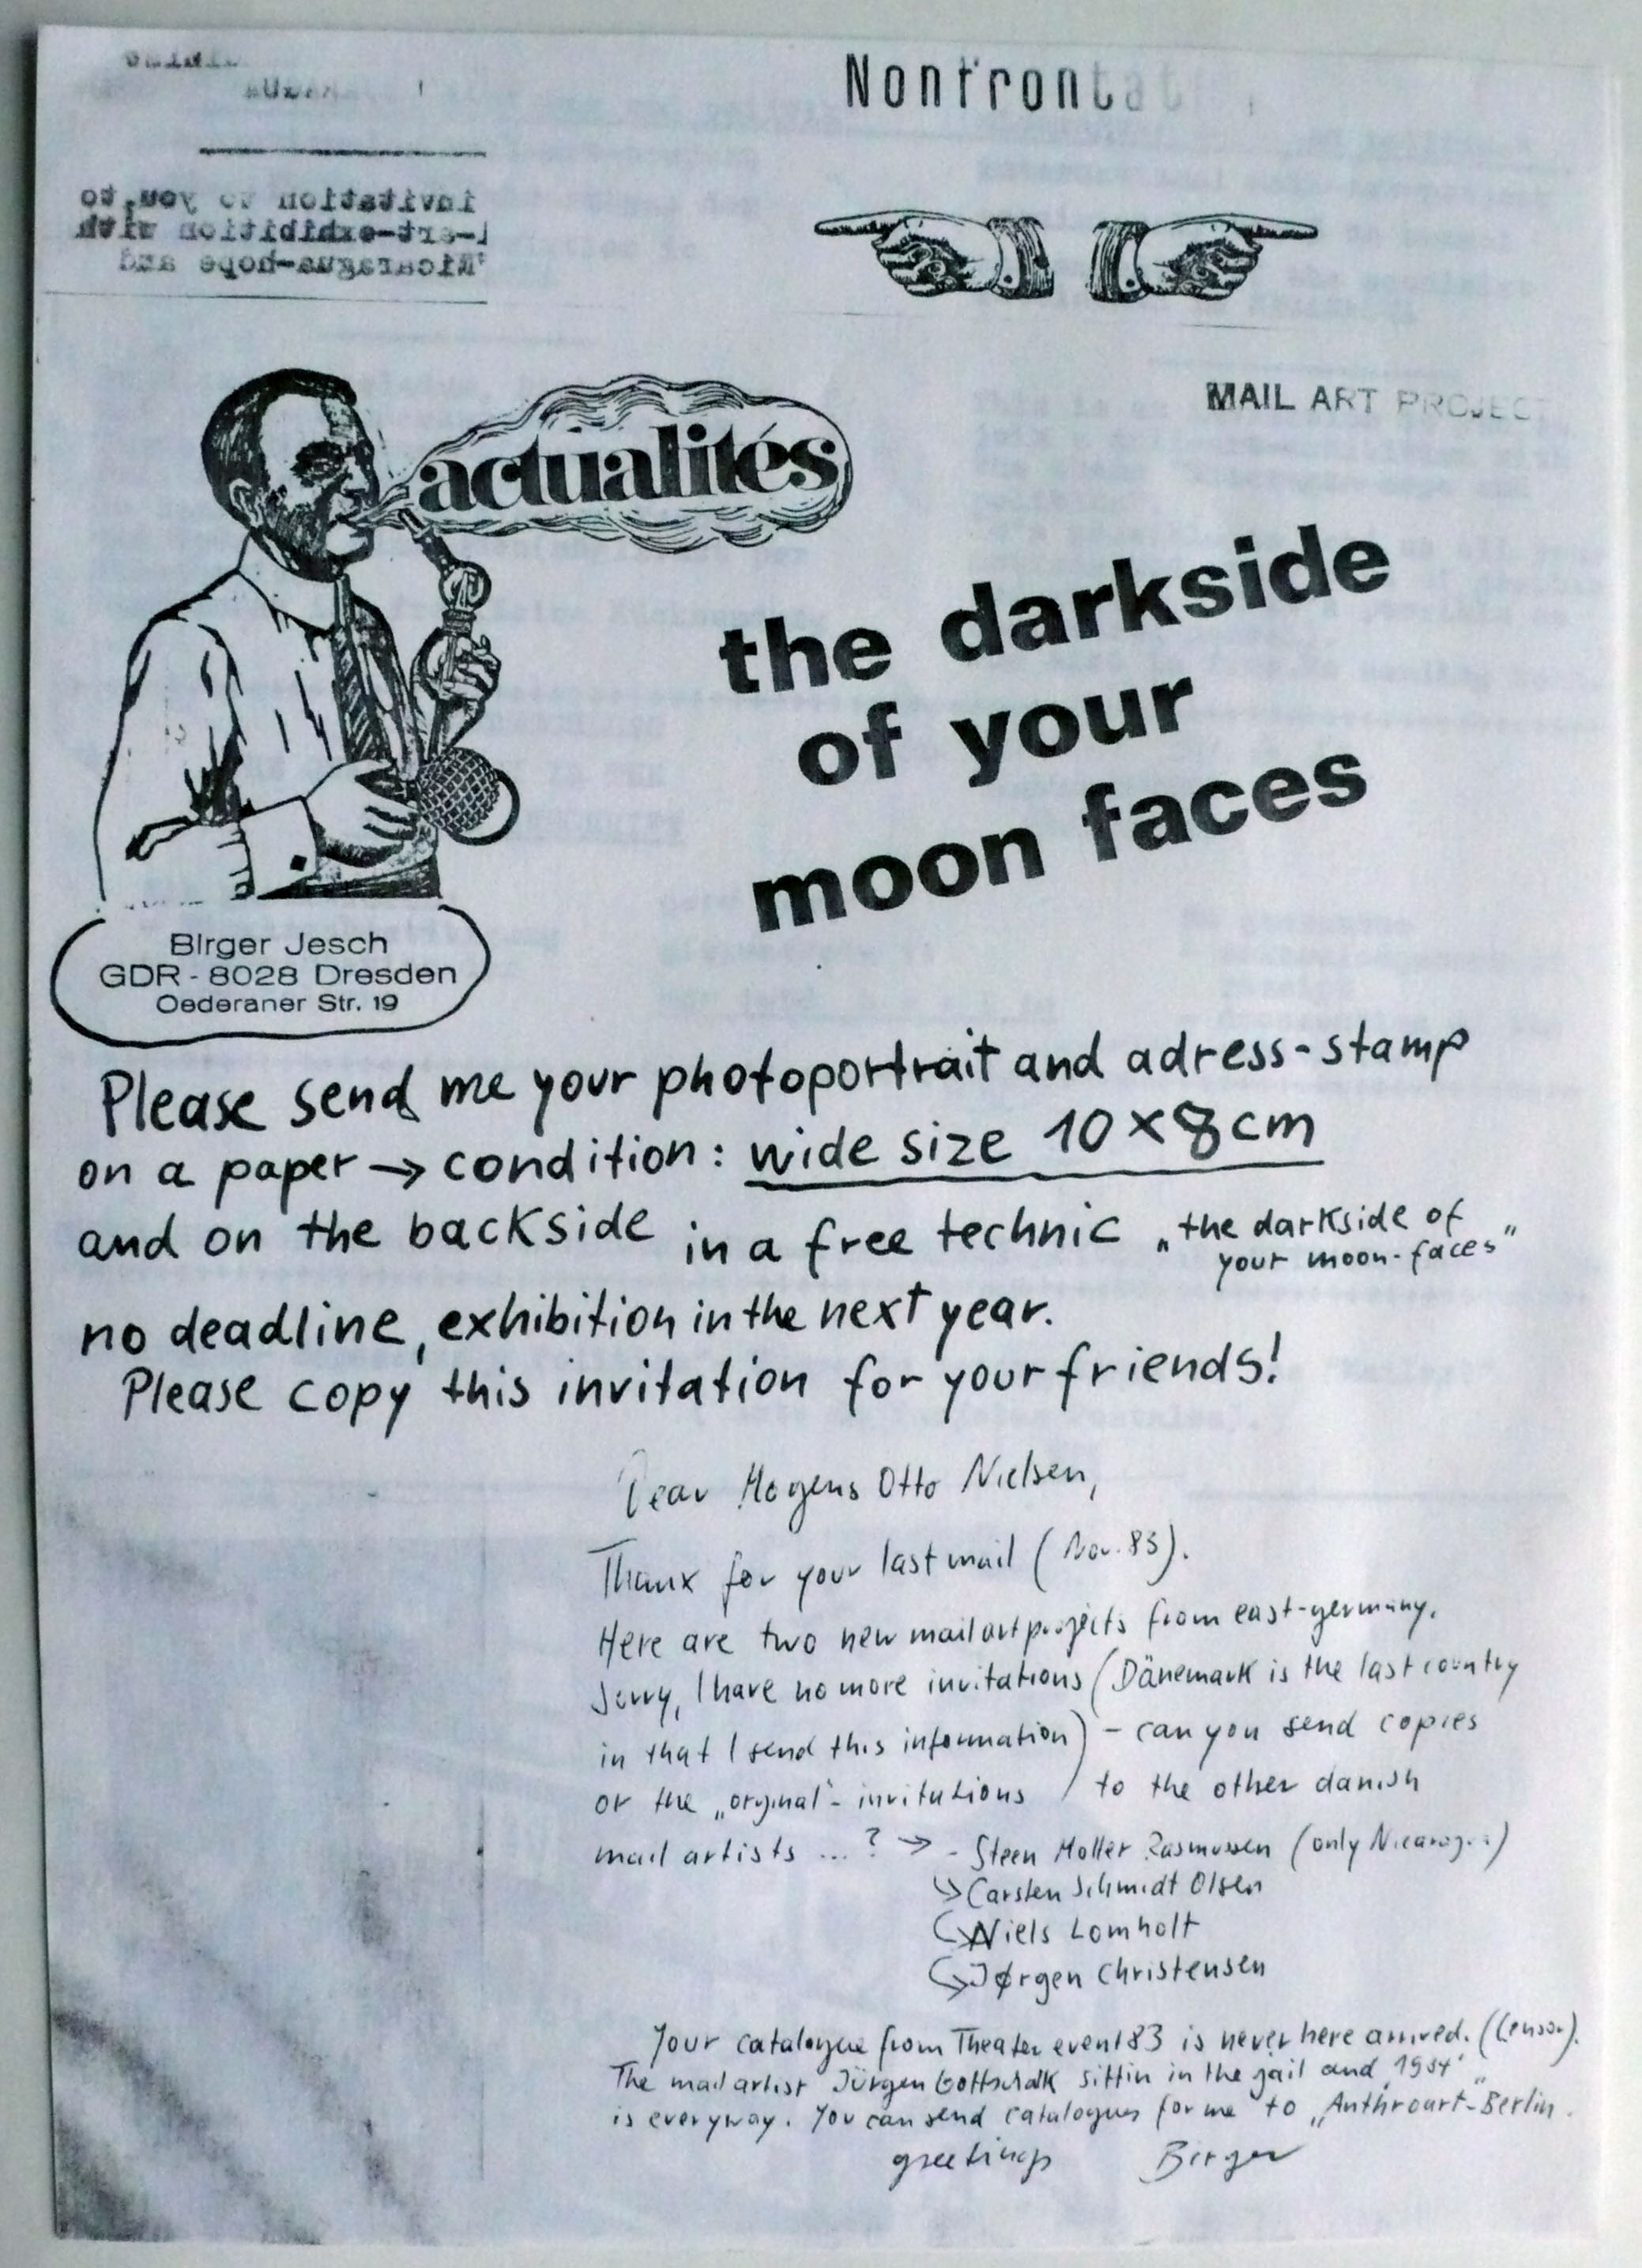 Nonfrontat
invitation to you to
l-art-exhibition with
"Nicaragua-hope and
MAIL ART PROJECT
actualités
the darkside
of your
moon faces
BIrger Jesch
GDR - 8028 Dresden
Oederaner Str. 19
Please send me your photoportrait and adress-stamp
on a paper → condition: wide size 10×8cm
and on the backside in a free technic „the darkside of
your moon-faces"
no deadline, exhibition in the next year.
Please copy this invitation for your friends!
Dear Mogens Otto Nielsen,
Thanx for your last mail (Nov. 83).
Here are two new mailartprojects from east-germany.
Sorry, I have no more invitations (Dänemark is the last country
in that I send this information) – can you send copies
or the „orginal"- invitations / to the other danish
mail artists ...? → - Steen Moller Rasmussen (only Nicaragua)
↳ Carsten Schmidt Olsen
↳ Niels Lomholt
↳ Jørgen Christensen
Your catalogue from Theater event 83 is never here arrived. (Censor).
The mailartist Jürgen Gottschalk sittin in the jail and „1984"
is everyway. You can send catalogues for me to „Anthroart-Berlin.
greetings Birger